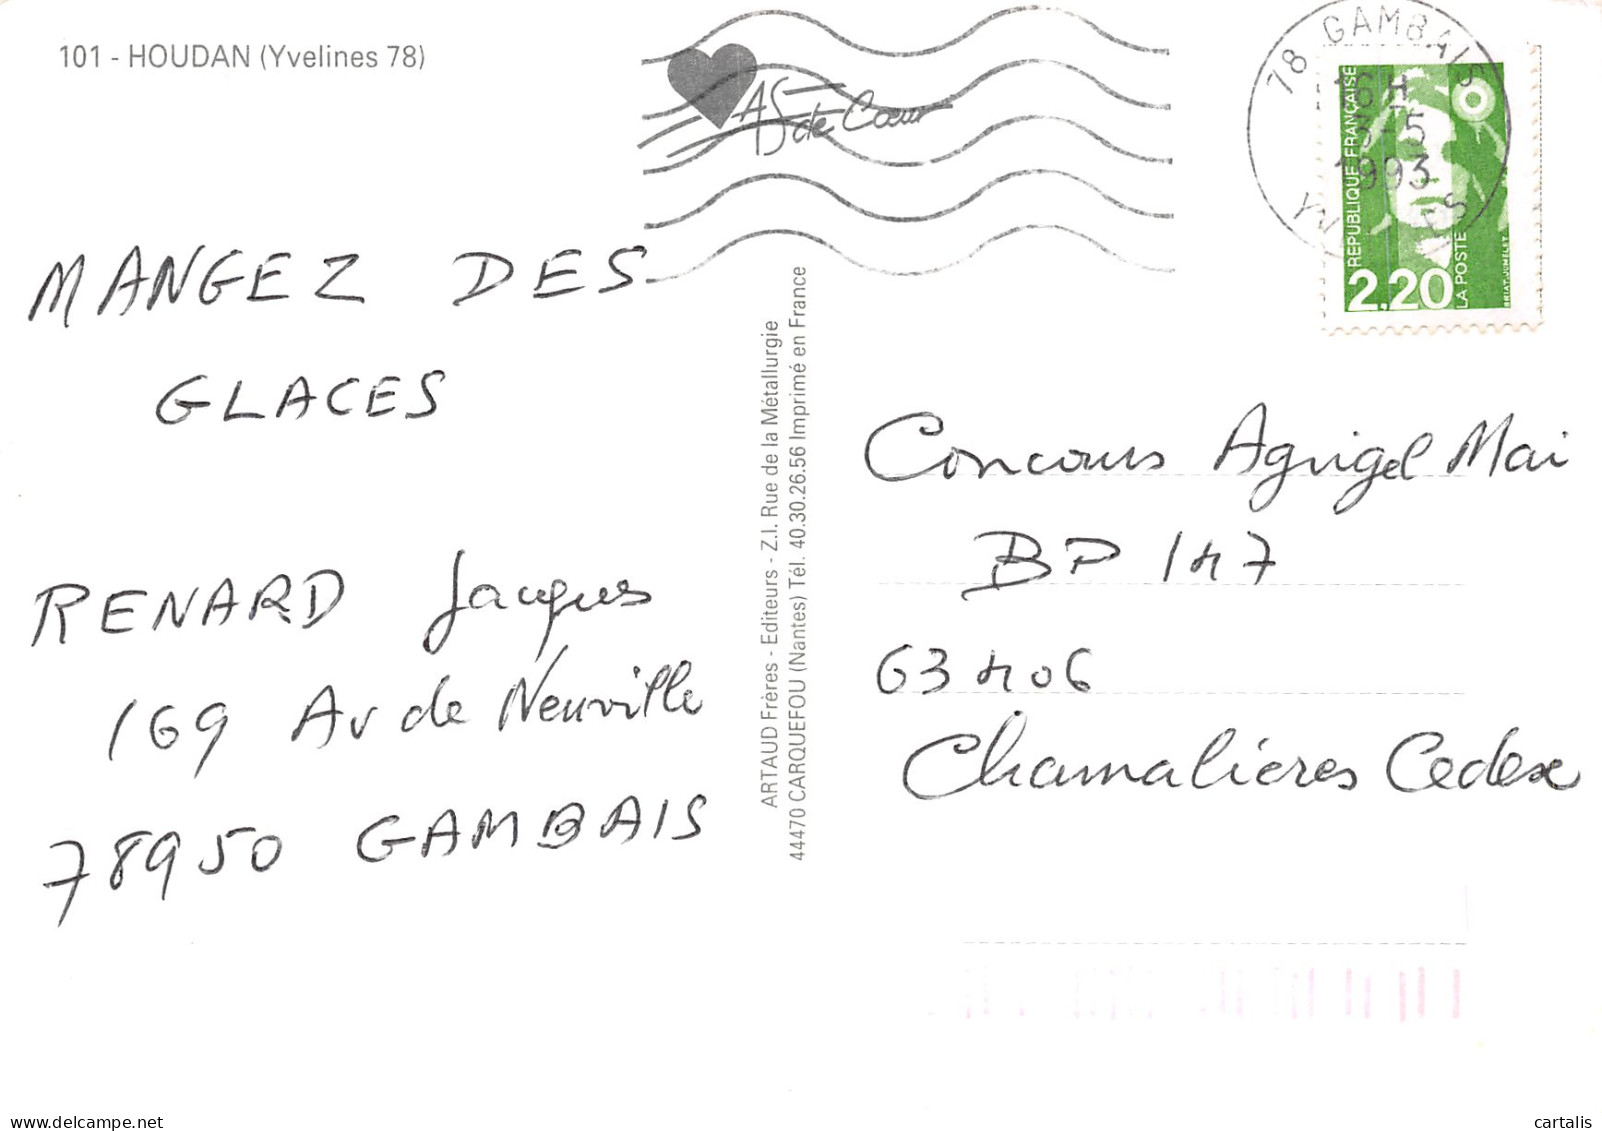 101 - HOUDAN (Yvelines 78)
AS de Cœur
78 GAMBAIS
16H
3-5
1993
RÉPUBLIQUE FRANÇAISE
2,20
LA POSTE
BRIAT-JUMELET
MANGEZ DES
GLACES
RENARD Jacques
169 Av de Neuville
78950 GAMBAIS
ARTAUD Frères - Editeurs - Z.I. Rue de la Métallurgie
44470 CARQUEFOU (Nantes) Tél. 40.30.26.56 Imprimé en France
Concours Agrigel Mai
BP 147
63406
Chamalières Cedex
delcampe.net
cartalis